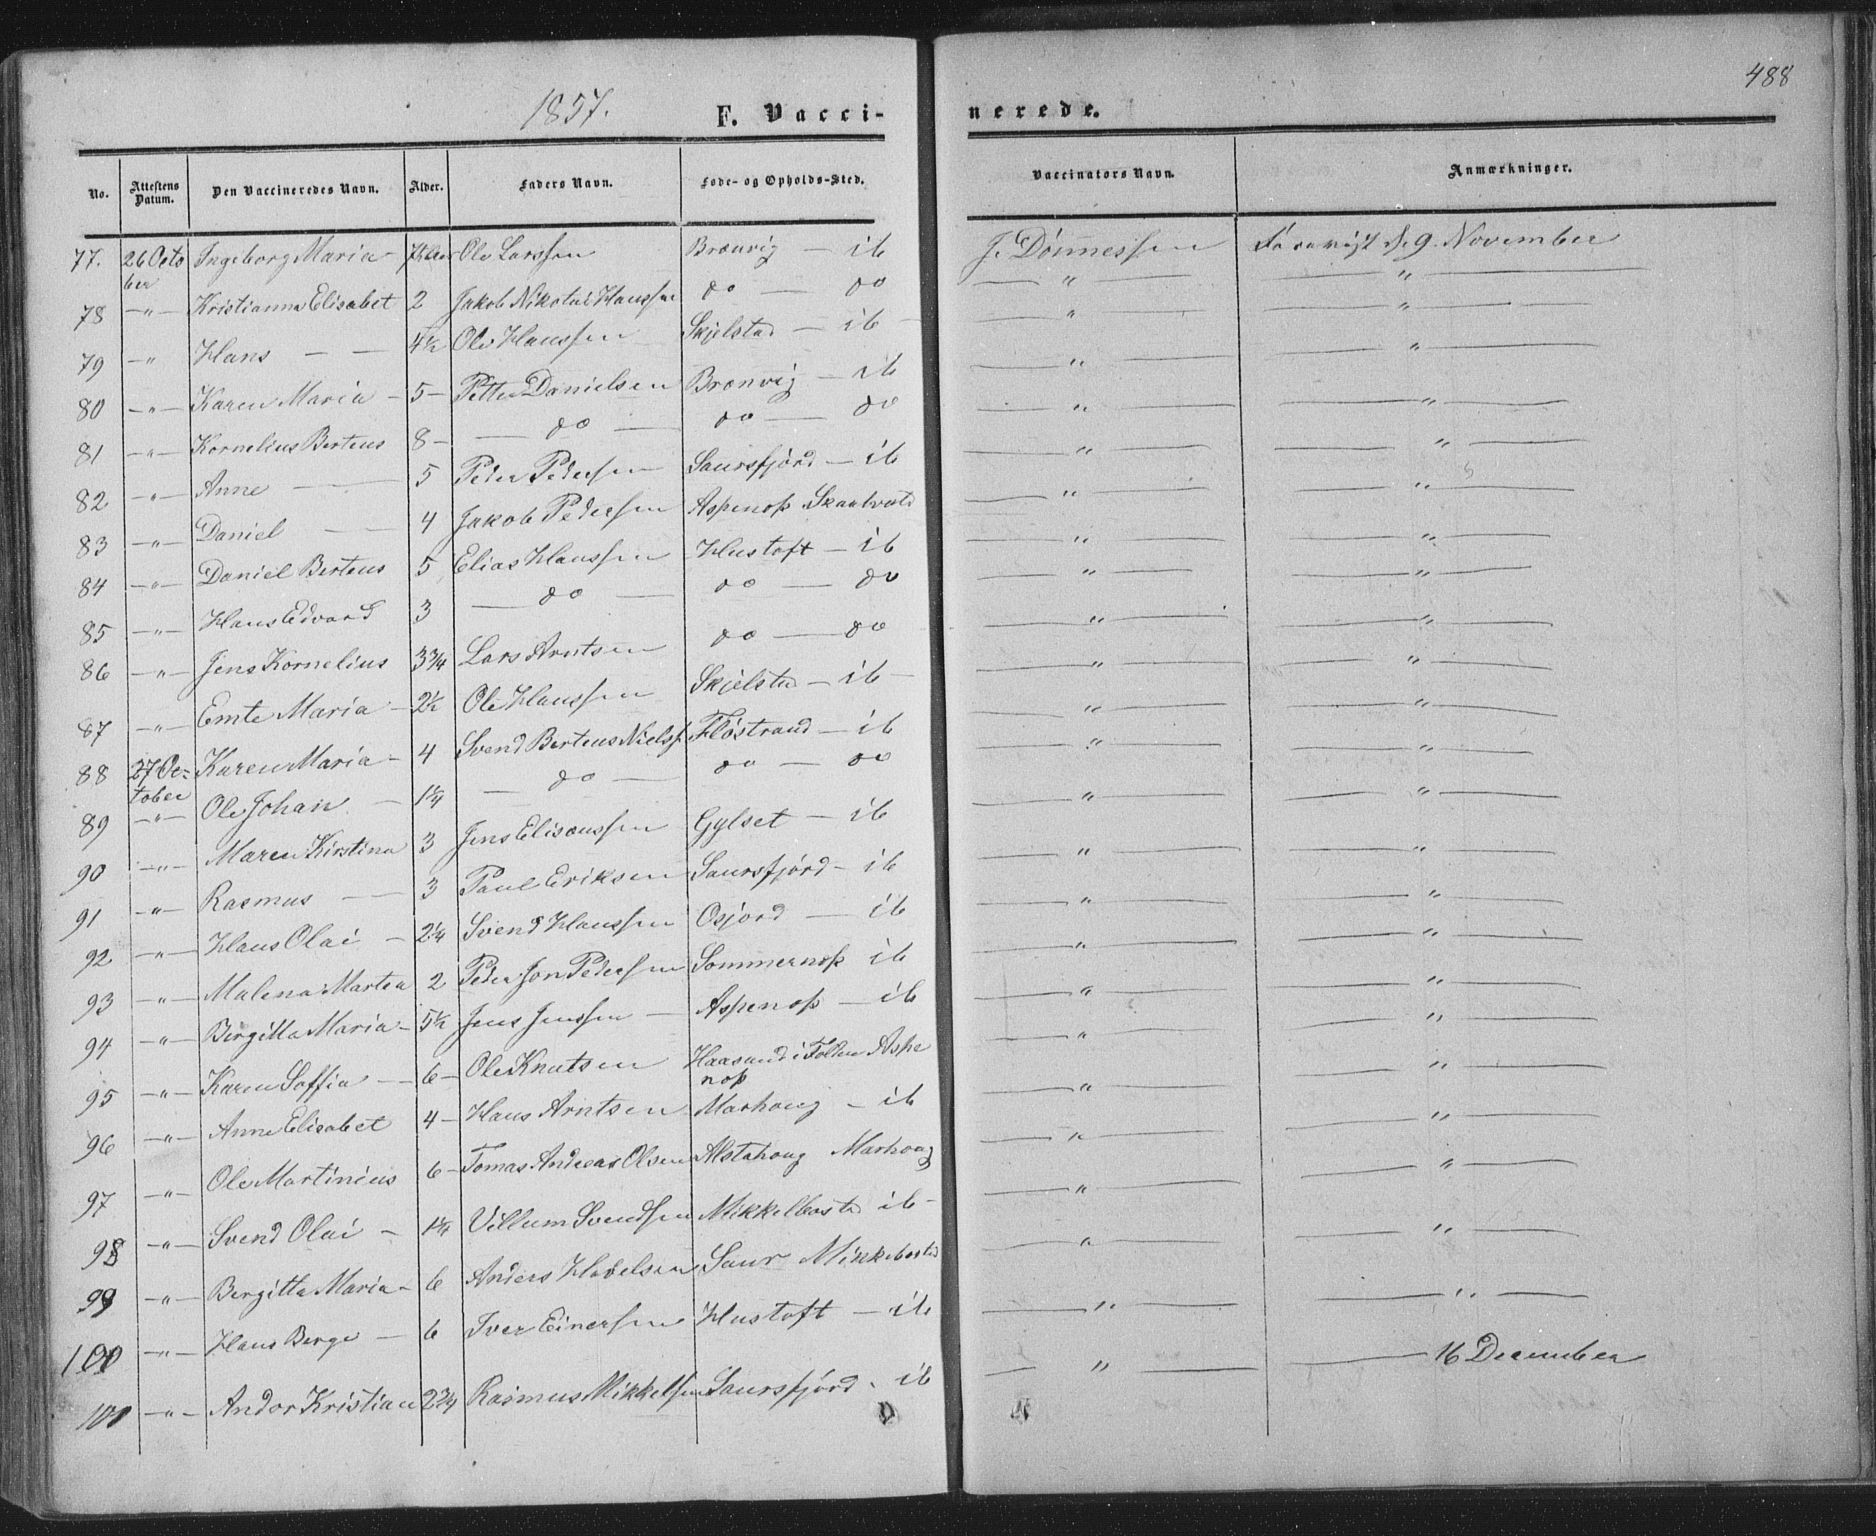 488
1857.
F. Vaccinerede.
No. Attestens Datum. Den Vaccineredes Navn. Alder. Faders Navn. Føde- og Opholds-Sted. Vaccinators Navn. Anmærkninger.
77. 26 October Ingeborg Maria - Ole Larssen Brænvig — ib J. Dønnessen 9 November
78 —"— Kristianna Elisabet 2 Jakob Nikolai Hanssen do — do — " — — " —
79 —"— Hans — — 4½ Ole Hanssen Skjelstad — ib — " — — " —
80 —"— Karen Maria - 5 - Petter Danielsen Brænvig — ib — " — — " —
81 —"— Kornelius Berteus 8 - — do — do — do — " — — " —
82 —"— Anne — 5 Peder Pedersen Saursfjord — ib — " — — " —
83 —"— Daniel — 4 Jakob Pedersen Aspenæs Skaalvold — " — — " —
84 —"— Daniel Berteus 5 Elias Hanssen Hustoft — ib — " — — " —
85 —"— Hans Edvard 3 — do — do — do — " — — " —
86 —"— Jens Kornelius 3¾ Lars Arntsen do — do — " — — " —
87 —"— Emte Maria - 2½ Ole Hanssen Skjelstad — ib - — " — — " —
88 27 October Karen Maria - 4 Svend Berteus Nielss Fløstrand — ib — " — — " —
89 —"— Ole Johan — 1¼ — do — do — do — " — — " —
90 —"— Maren Kirstina 3 Jens Elisæussen Gylset — ib — " — — " —
91 —"— Rasmus — 3 Paul Eriksen Saursfjord - ib — " — — " —
92 —"— Hans Olai - 2¼ Svend Hanssen Osjord — ib — " — — " —
93 —"— Malena Martea 2 Peder Jon Pedersen Sommernæs ib — " — — " —
94 —"— Birgitta Maria - 5½ Jens Jenssen — Aspenæs — ib — " — — " —
95 —"— Karen Soffia — 6 - Ole Knutsen Haasund i Folden Aspenæs — " — — " —
96 —"— Anne Elisabet 4 - Hans Arntsen Marhoug - ib — " — — " —
97 —"— Ole Martinius 6 - Tomas Andreas Olsen Alstahoug Marhoug — " — — " —
98 —"— Svend Olai - 1¼ Villum Svendsen Mikkelbostad ib - — " — — " —
99 —"— Bergitta Maria - 6 Anders Habelsen Saur Mikkebostad — " — — " —
100 —"— Hans Berge — 6 Iver Einersen Hustoft — ib — " — — " —
101 —"— Andor Kristian 2¾ Rasmus Mikkelsen Saursfjord - ib — " — 16 December